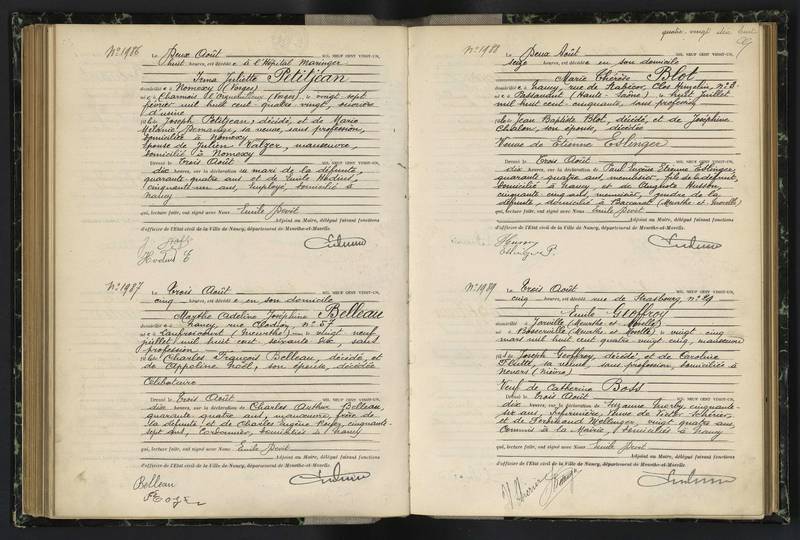 quatre vingt dix huit
N° 1986
Le Deux Août MIL NEUF CENT VINGT-UN,
huit heures, est décédée à l'Hôpital Maringer
Irma Juliette Petitjean
domiciliée à Nomexy (Vosges)
née à Charmois l'Orgueilleux (Vosges), le vingt sept
février mil huit cent quatre-vingt, ouvrière
d'usine
fille de Joseph Petitjean, décédé, et de Marie
Mélanie Demange, sa veuve, sans profession,
domiciliée à Nomexy
Épouse de Julien Kalzer, manœuvre,
domicilié à Nomexy
Dressé le trois Août MIL NEUF CENT VINGT-UN,
dix heures, sur la déclaration du mari de la défunte,
quarante quatre ans et de Emile Hodin,
cinquante un ans, employé, domicilié à
Nancy
qui, lecture faite, ont signé avec Nous Emile Devit
Adjoint au Maire, délégué faisant fonctions
d'officier de l'État civil de la Ville de Nancy, département de Meurthe-et-Moselle.
N° 1987
Le Trois Août MIL NEUF CENT VINGT-UN,
cinq heures, est décédée en son domicile
Marthe Cadeline Joséphine Belleau
domiciliée à Nancy, rue Clodion, n° 57
née à Lanfroicourt (Meurthe) le vingt neuf
juillet mil huit cent soixante dix, sans
profession
fille de Charles François Belleau, décédé, et
de Appoline Noël, son épouse, décédée
Célibataire
Dressé le trois Août MIL NEUF CENT VINGT-UN,
dix heures, sur la déclaration de Charles Arthur Belleau,
quarante quatre ans, manœuvre, frère de
la défunte et de Charles Eugène Royer, cinquante
sept ans, Cordonnier, domiciliés à Nancy
qui, lecture faite, ont signé avec Nous Emile Devit
Adjoint au Maire, délégué faisant fonctions
d'officier de l'État civil de la Ville de Nancy, département de Meurthe-et-Moselle.
Belleau
N° 1988
Le Deux Août MIL NEUF CENT VINGT-UN,
seize heures, est décédée en son domicile
Marie Thérèse Blot
domiciliée à Nancy, rue de Nabécor, Clos Himelin, n° 3
née à Passavant (Haute-Saône) le huit juillet
mil huit cent cinquante, sans profession
fille de Jean Baptiste Blot, décédé, et de Joséphine
Chalon, son épouse, décédée
Veuve de Etienne Eslinger
Dressé le Trois Août MIL NEUF CENT VINGT-UN,
dix heures, sur la déclaration de Paul Eugène Etienne Eslinger,
quarante quatre ans, menuisier, fils de la défunte,
domicilié à Nancy, et de Auguste Husson,
cinquante cinq ans, menuisier, gendre de la
défunte, domicilié à Baccarat (Meurthe et Moselle)
qui, lecture faite, ont signé avec Nous Emile Devit
Adjoint au Maire, délégué faisant fonctions
d'officier de l'État civil de la Ville de Nancy, département de Meurthe-et-Moselle.
Husson
Eslinger P.
N° 1989
Le Trois Août MIL NEUF CENT VINGT-UN,
cinq heures, est décédé rue de Strasbourg, n° 29
Emile Geoffroy
domicilié à Jarville (Meurthe et Moselle)
né à Bosserville (Meurthe et Moselle) le vingt cinq
mars mil huit cent quatre vingt cinq, manœuvre
fils de Joseph Geoffroy, décédé, et de Caroline
sa veuve, sans profession, domiciliée à
Nevers (Nièvre)
Veuf de Catherine Boss
Dressé le Trois Août MIL NEUF CENT VINGT-UN,
dix heures, sur la déclaration de Suzanne cinquante
six ans, infirmière, Veuve de Victor Scherier,
et de Ferdinand Wellenger, vingt quatre ans,
Commis à la Mairie, domiciliés à Nancy
qui, lecture faite, ont signé avec Nous Emile Devit
Adjoint au Maire, délégué faisant fonctions
d'officier de l'État civil de la Ville de Nancy, département de Meurthe-et-Moselle.